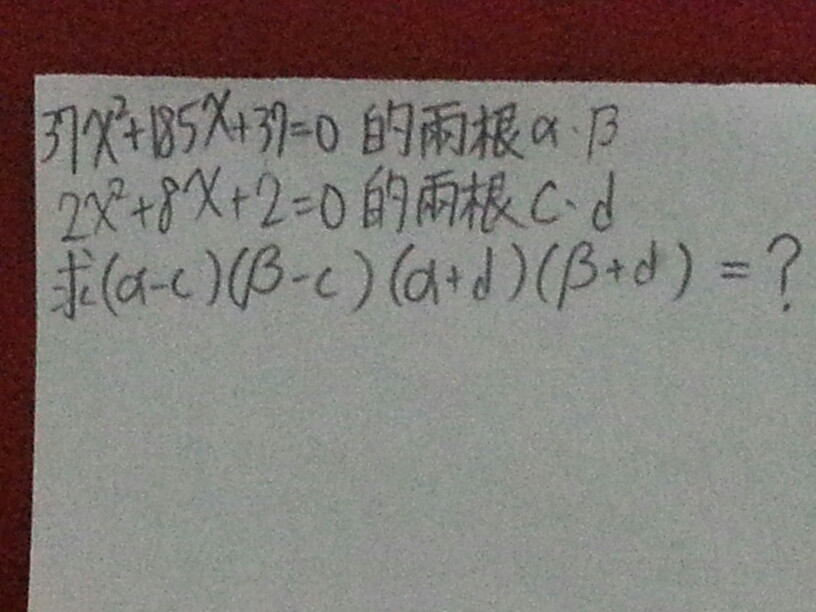 37x²+185x+37=0 的兩根α·β
2x²+8x+2=0 的兩根c·d
求(α-c)(β-c)(α+d)(β+d)=?